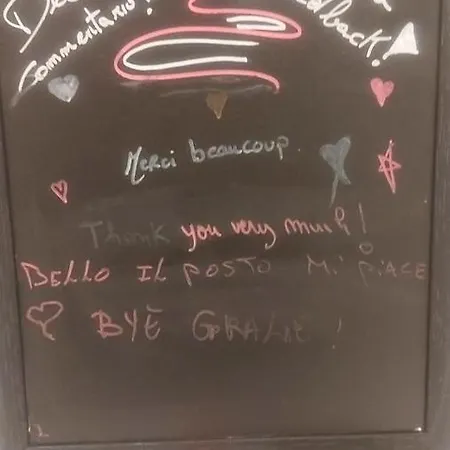 commentario!
feedback!
Merci beaucoup.
Thank you very much!
BELLO IL POSTO MI PIACE
BYE GRAZIE!